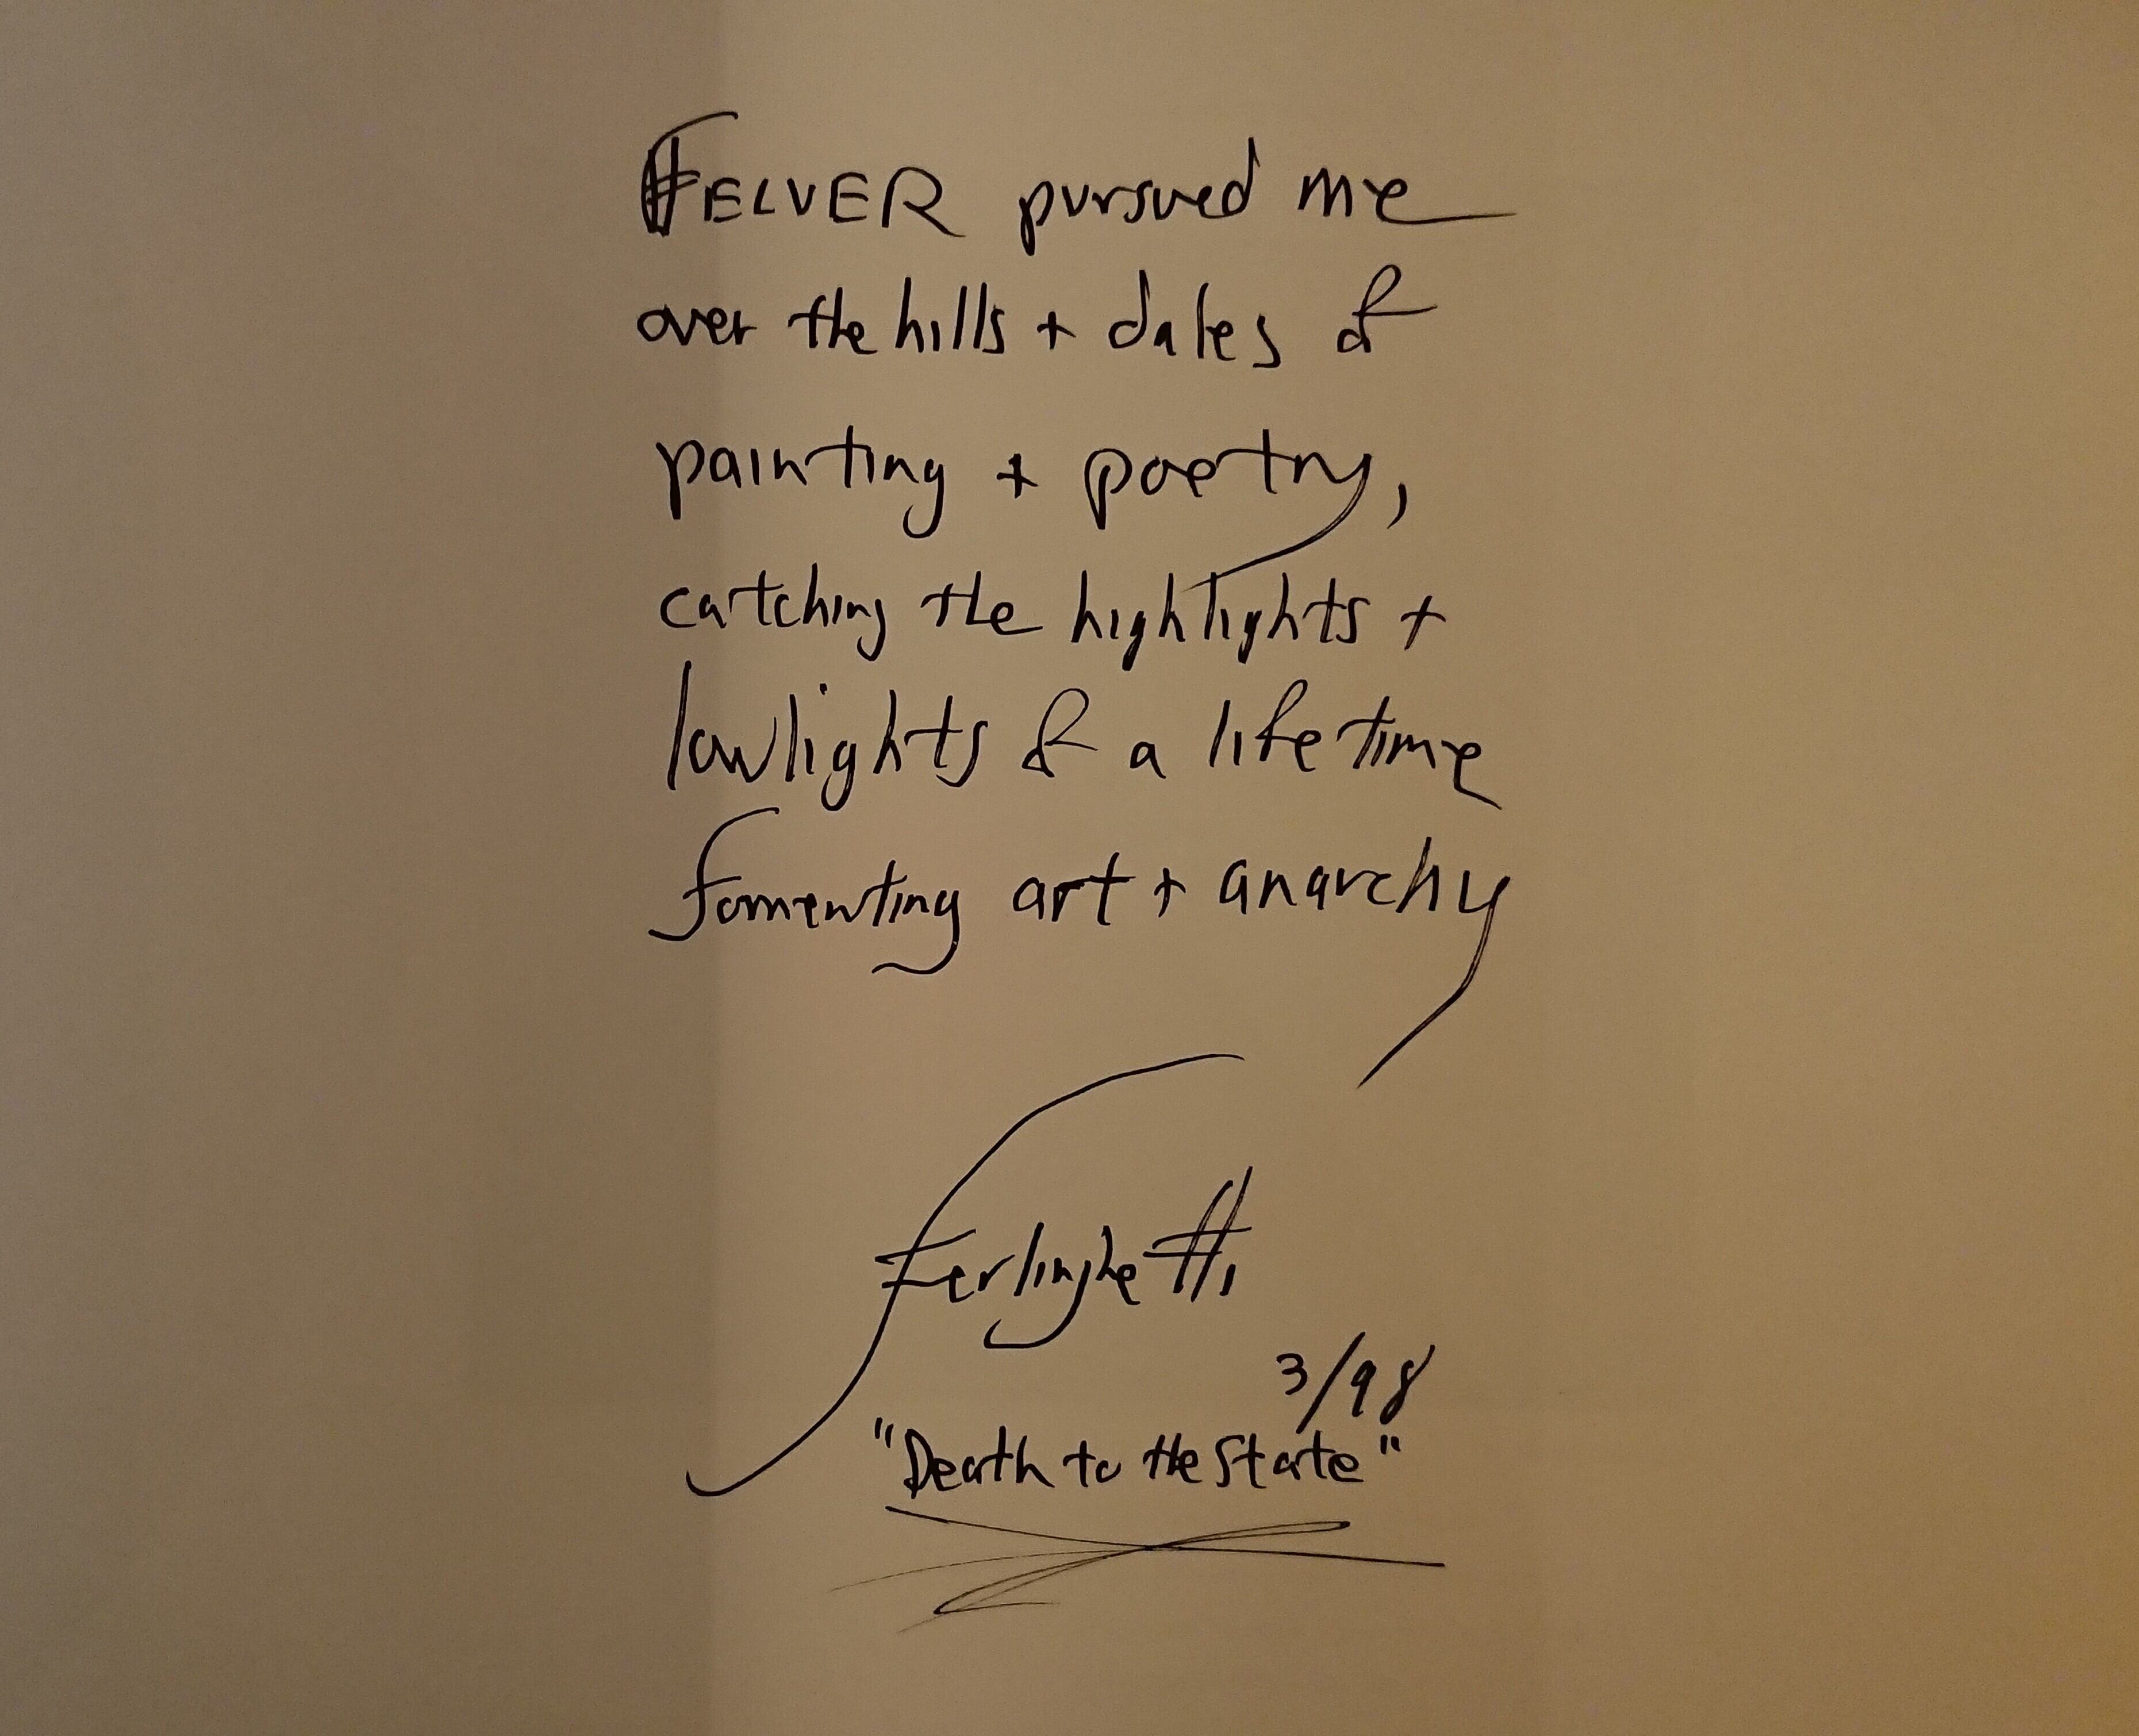 FELVER pursued me
over the hills + dales of
painting + poetry,
catching the highlights +
lowlights of a life time
fomenting art + anarchy
Ferlinghetti
3/98
"Death to the State"